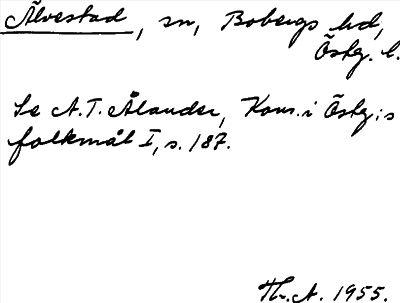 Älvestad, sn, Bobergs hd,
Östg. l.
Se A.T. Ålander, Kons. i Östg:s
folkmål I, s. 187.
Th. A. 1955.